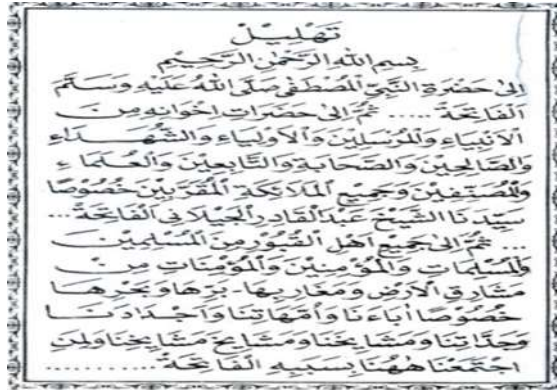 تَهْلِيْل
بِسْمِ اللهِ الرَّحْمٰنِ الرَّحِيْمِ
اِلَى حَضْرَةِ النَّبِيِّ الْمُصْطَفَى صَلَّى اللهُ عَلَيْهِ وَسَلَّمَ
اَلْفَاتِحَةْ ..... ثُمَّ اِلَى حَضَرَاتِ اِخْوَانِهِ مِنَ
الْاَنْبِيَاءِ وَالْمُرْسَلِيْنَ وَالْاَوْلِيَاءِ وَالشُّهَدَاءِ
وَالصَّالِحِيْنَ وَالصَّحَابَةِ وَالتَّابِعِيْنَ وَالْعُلَمَاءِ
وَالْمُصَنِّفِيْنَ وَجَمِيْعِ الْمَلَائِكَةِ الْمُقَرَّبِيْنَ خُصُوْصًا
سَيِّدِنَا الشَّيْخِ عَبْدِ الْقَادِرِ الْجَيْلَانِي اَلْفَاتِحَةْ ...
... ثُمَّ اِلَى جَمِيْعِ اَهْلِ الْقُبُوْرِ مِنَ الْمُسْلِمِيْنَ
وَالْمُسْلِمَاتِ وَالْمُؤْمِنِيْنَ وَالْمُؤْمِنَاتِ مِنْ
مَشَارِقِ الْاَرْضِ وَمَغَارِبِهَا بَرِّهَا وَبَحْرِهَا
خُصُوْصًا اٰبَاءَنَا وَاُمَّهَاتِنَا وَاَجْدَادَنَا
وَجَدَّاتِنَا وَمَشَايِخَنَا وَمَشَايِخَ مَشَايِخِنَا وَلِمَنِ
اجْتَمَعْنَا هٰهُنَا بِسَبَبِهِ اَلْفَاتِحَةْ ............